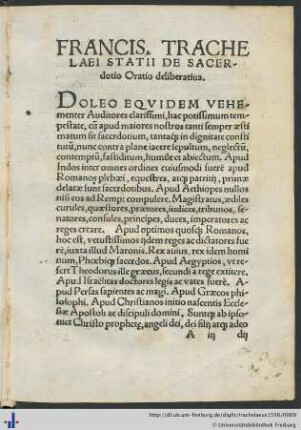 FRANCIS. TRACHE
LAEI STATII DE SACER-
dotio Oratio deliberatiua.
DOLEO EQVIDEM VEHE-
menter Auditores clarissimi, hac potissimum tem-
pestate, cũ apud maiores nostros tanti semper æsti
matum sit sacerdotium, tantaq; in dignitate consti
tutũ, nunc contra plane iacere sepultum, neglectũ,
contemptũ, fastiditum, humile et abiectum. Apud
Indos inter omnes ordines cuiusmodi fuerẽ apud
Romanos plebæi, equestres, atq; patritij, primæ
delatæ sunt sacerdotibus. Apud Aethiopes nullos
nisi eos ad Remp: compulere. Magistratus, ædiles
curules, quæstores, prætores, iudices, tribunos, se-
natores, consules, principes, duces, imperatores ac
reges creare. Apud optimos quosq; Romanos,
hoc est, vetustissimos ijdem reges ac dictatores fue
rẽ, iuxta illud Maronis. Rex Anius, rex idem homi
num, Phœbiq; sacerdos. Apud Aegyptios, vt re-
fert Theodorus ille græcus, secundi a rege extitere.
Apud Israëlitas doctores legis ac vates fuerẽ. A-
pud Persas sapientes ac magi. Apud Græcos phi-
losophi. Apud Christianos initio nascentis Eccle-
siæ Apostoli ac discipuli domini, Suntq; ab ipso-
met Christo prophetę, angeli dei, dei filij atq; adeo
A iij dij
http://dl.ub.uni-freiburg.de/diglit/trachelaeus1536/0009
© Universitätsbibliothek Freiburg